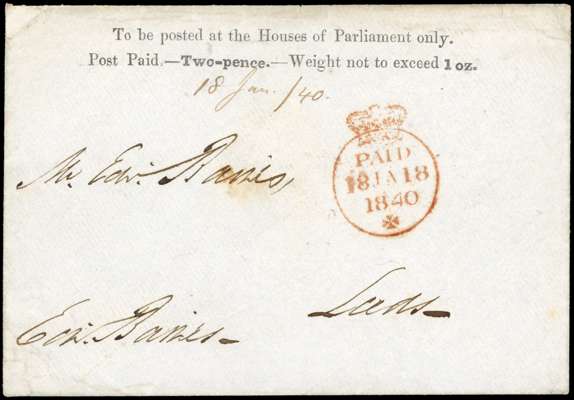 To be posted at the Houses of Parliament only.
Post Paid.—Two-pence.—Weight not to exceed 1 oz.
18 Jan. /40.
PAID
18 JA 18
1840
Mr. Edw. Baines,
Leeds
Edw. Baines